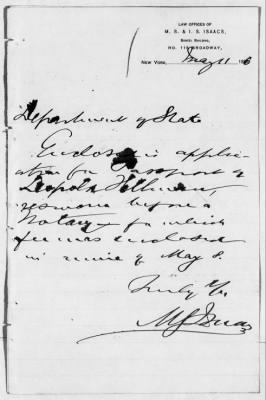 LAW OFFICES OF
M. S. & I. S. ISAACS,
NO. 115 BROADWAY,
NEW YORK, May 11 186
Department of State
Enclosed is applic-
ation for Passport of
Leopold Hellman,
before a
Notary for which
fee was enclosed
in of May 8.
Truly Yrs
M S Isaacs